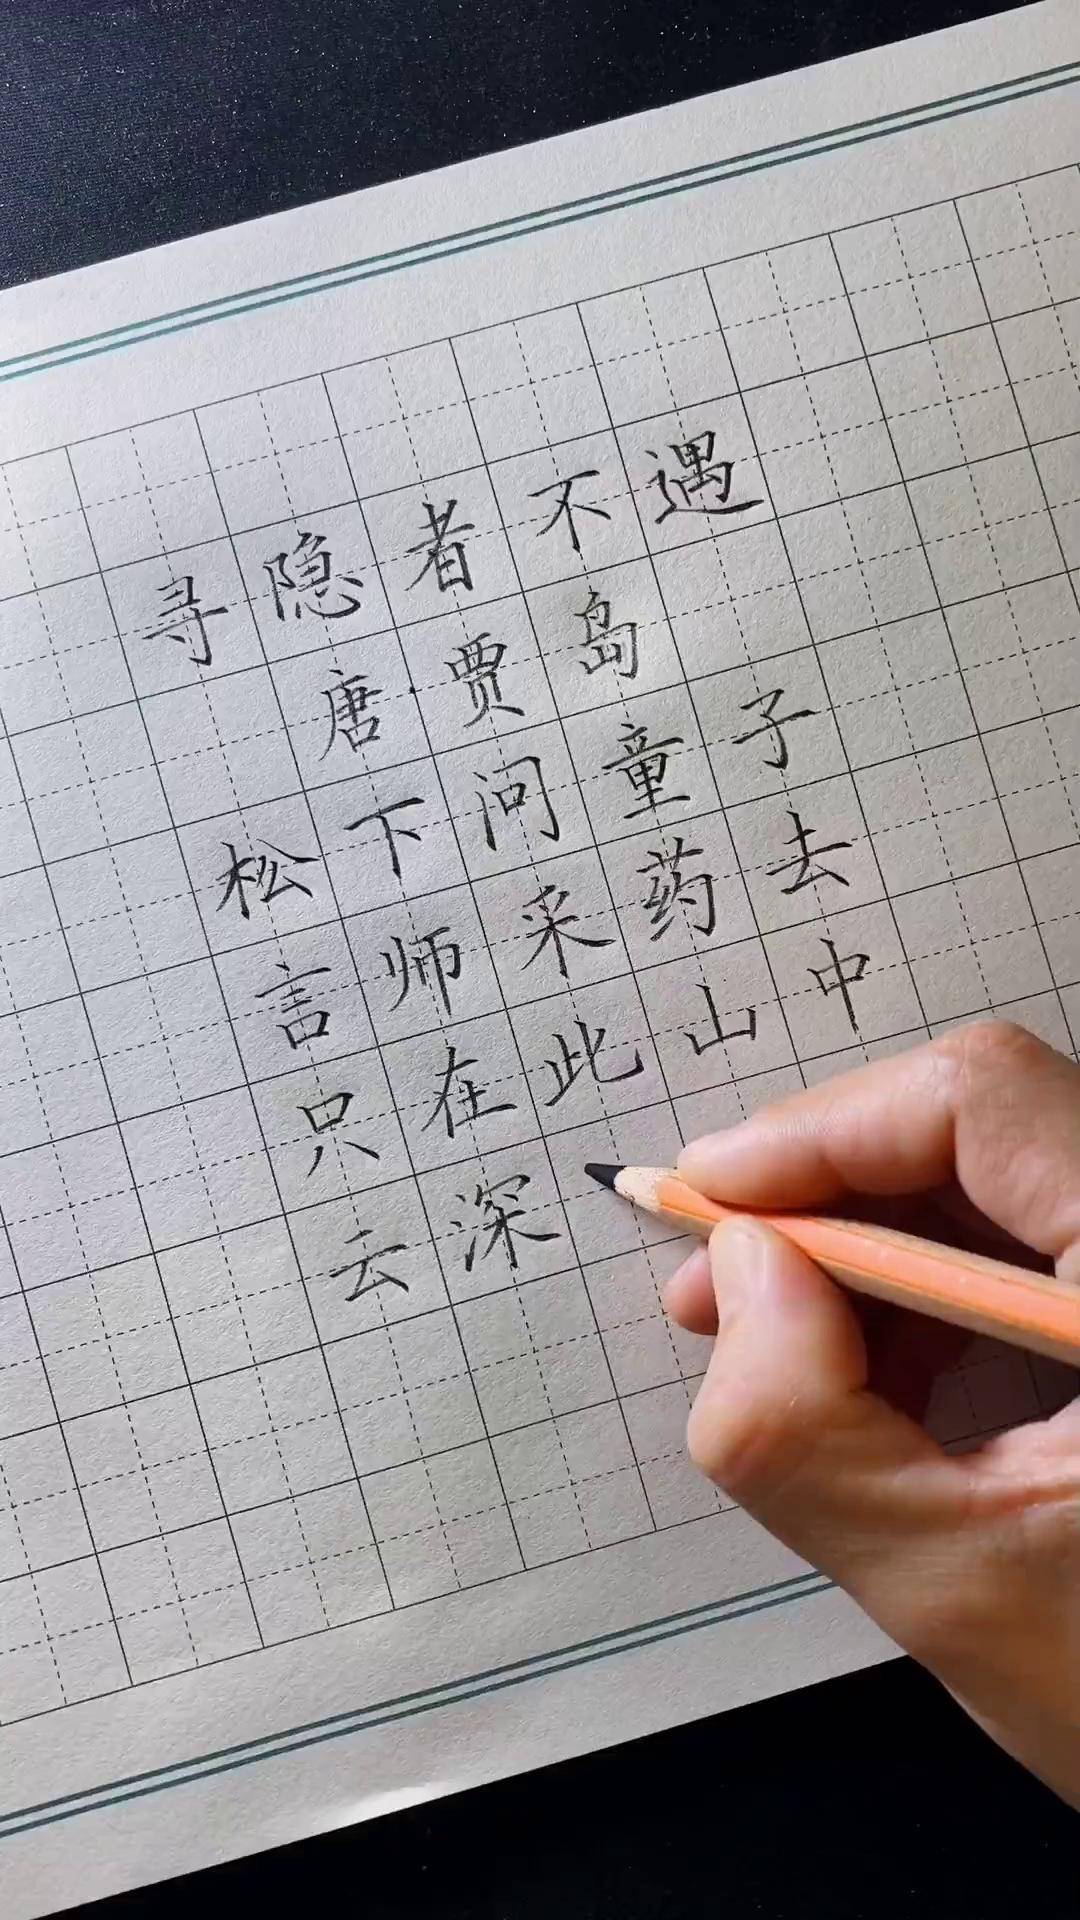 寻隐者不遇
唐·贾岛
松下问童子
言师采药去
只在此山中
云深